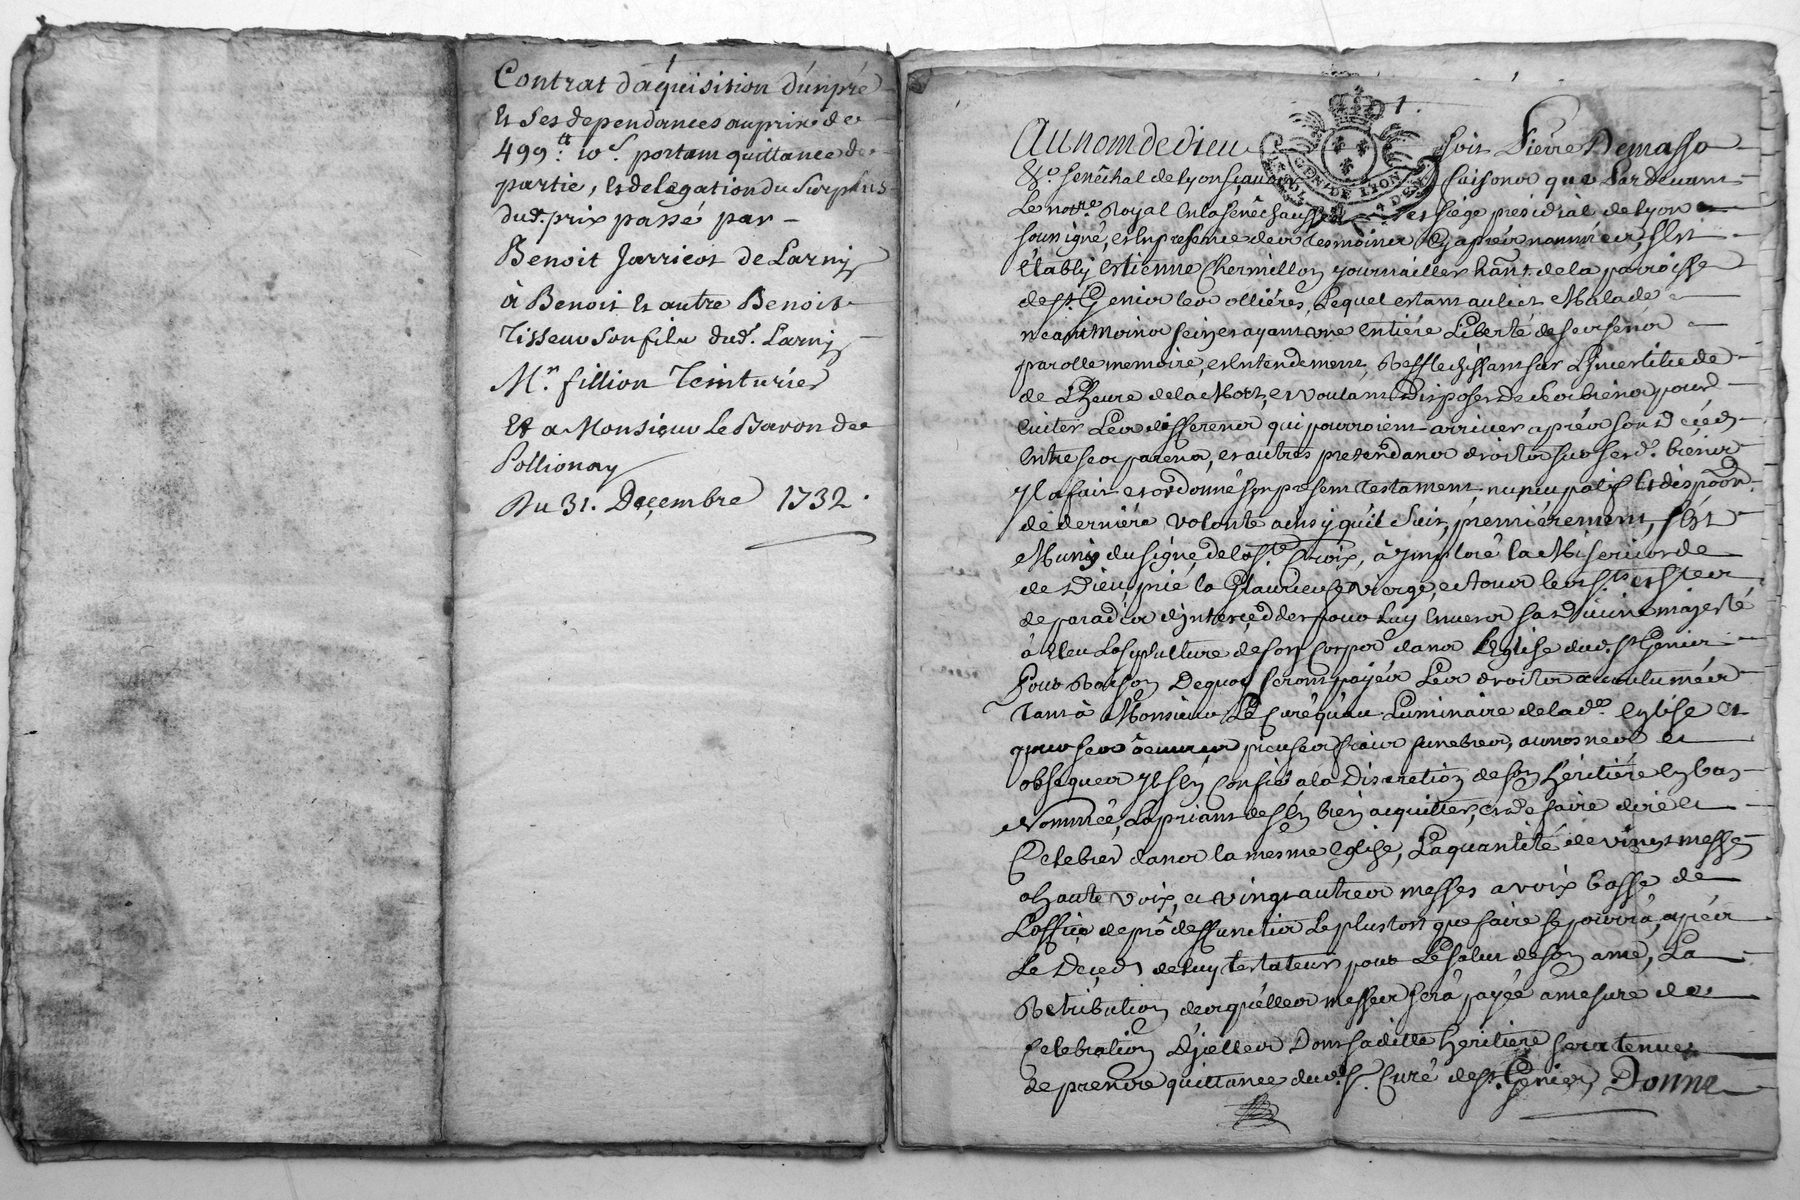 Contrat daquisition d'un pré
Et ses dependances au prix de
499 tt: 10 s. portant quittance de
partie, et delegation du Surplus
dud. prix passé par
Benoit Jarricot de Larny
à Benoit et autre Benoit
Tisseur son fils dud. Larny
Mr. fillion Teinturier
Et a Monsieur Le Baron de
Pollionay
Du 31. Decembre 1732.
1.
Au nom de dieu soit Pierre Demasso
GEN. DE LYON
senêchal de Lyon scavoir faisons que Pardevant
Le notre. Royal En la senêchaussée et siége présidial de Lyon
soussigné, et En presence des tesmoins Cy aprés nommées, s'est
établi Estienne Chermillon journaillier hant. de la parroisse
de st. Genis les ollières, Lequel estant au lict Malade
neantmoins sein et ayant une Entiére Liberté de ses sens
parolle memoire, et entendement, Refflechissant sur L'Incertitude
de L'heure de la Mort, et voulant disposer de ses biens pour
Eviter Les differens qui pourroient arriver aprés son decéds
Entre ses parens, et autres pretendans droits sur sesd. biens
Il a fait et ordonné son present testament, nuncupatif Et dispoôn.
de derniére volonté ainsy qu'il suit, premiérement, s'est
Muny du signe de la ste. Croix, à Imploré la Misericorde
de Dieu, prié la Glorieuse vierge, et tous les sts. et stes
de paradis d'Interceder pour Luy Envers sa divine majesté
à Eleu La sepulture de son Corps dans L'Eglise dud. st. Genis
Pour Raison Dequoy seront payés Les droits accoutumés
tant à Monsieur Le Curé qu'au Luminaire de lade. Eglise Et
pour ses oeuvres pieuses frais funebres, aumosnes et
obseques Il s'en Confie à la Discretion de son héritiére Cy bas
Nommée, La priant de s'en bien acquitter, et de faire dire et
Celebrer dans la mesme Eglise, La quantité de vingt messes
a haute voix, et vingt autres messes a voix basse de
L'office de pro deffunctis Le plustost que faire se pourra, aprés
Le Decéds de Luy testateur pour Le salut de son ame, La
Retribution desquelles messes sera payée a mesure de
Celebration D'jcelles Dont saditte heritiere sera tenue
de prendre quittance dud. s. Curé de st. Genis, Donne